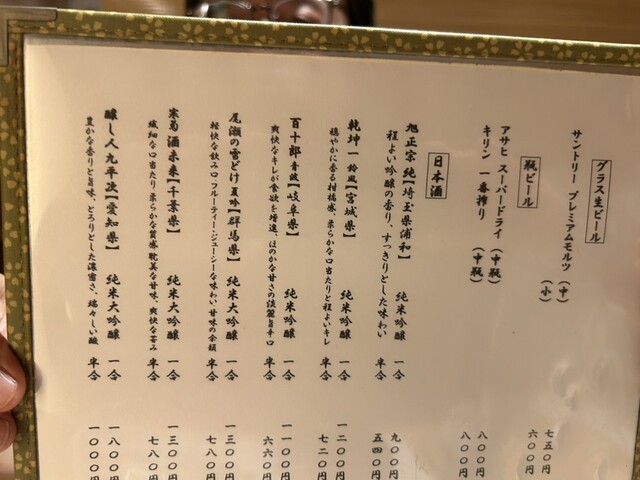 グラス生ビール
サントリー プレミアムモルツ （中） 七五〇円
（小） 六〇〇円
瓶ビール
アサヒ スーパードライ （中瓶） 八〇〇円
キリン 一番搾り （中瓶） 八〇〇円
日本酒
旭正宗 純【埼玉県浦和】 純米吟醸 一合 九〇〇円
程よい吟醸の香り、すっきりとした味わい 半合 五四〇円
乾坤一 鈴風【宮城県】 純米吟醸 一合 一二〇〇円
穏やかに香る柑橘感、柔らかな口当たりと程よいキレ 半合 七二〇円
百十郎 青波【岐阜県】 純米吟醸 一合 一一〇〇円
爽快なキレが食欲を増進、ほのかな甘さの淡麗旨辛口 半合 六六〇円
尾瀬の雪どけ 夏吟【群馬県】 純米大吟醸 一合 一三〇〇円
軽快な飲み口 フルーティー・ジューシーな味わい 甘味の余韻 半合 七八〇円
寒菊 酒未来【千葉県】 純米大吟醸 一合 一三〇〇円
繊細な口当たり 柔らかな質感 耽美な甘味、爽快な苦み 半合 七八〇円
醸し人九平次【愛知県】 純米大吟醸 一合 一八〇〇円
豊かな香りと旨味、とろりとした濃密さ、瑞々しい酸 半合 一〇〇〇円